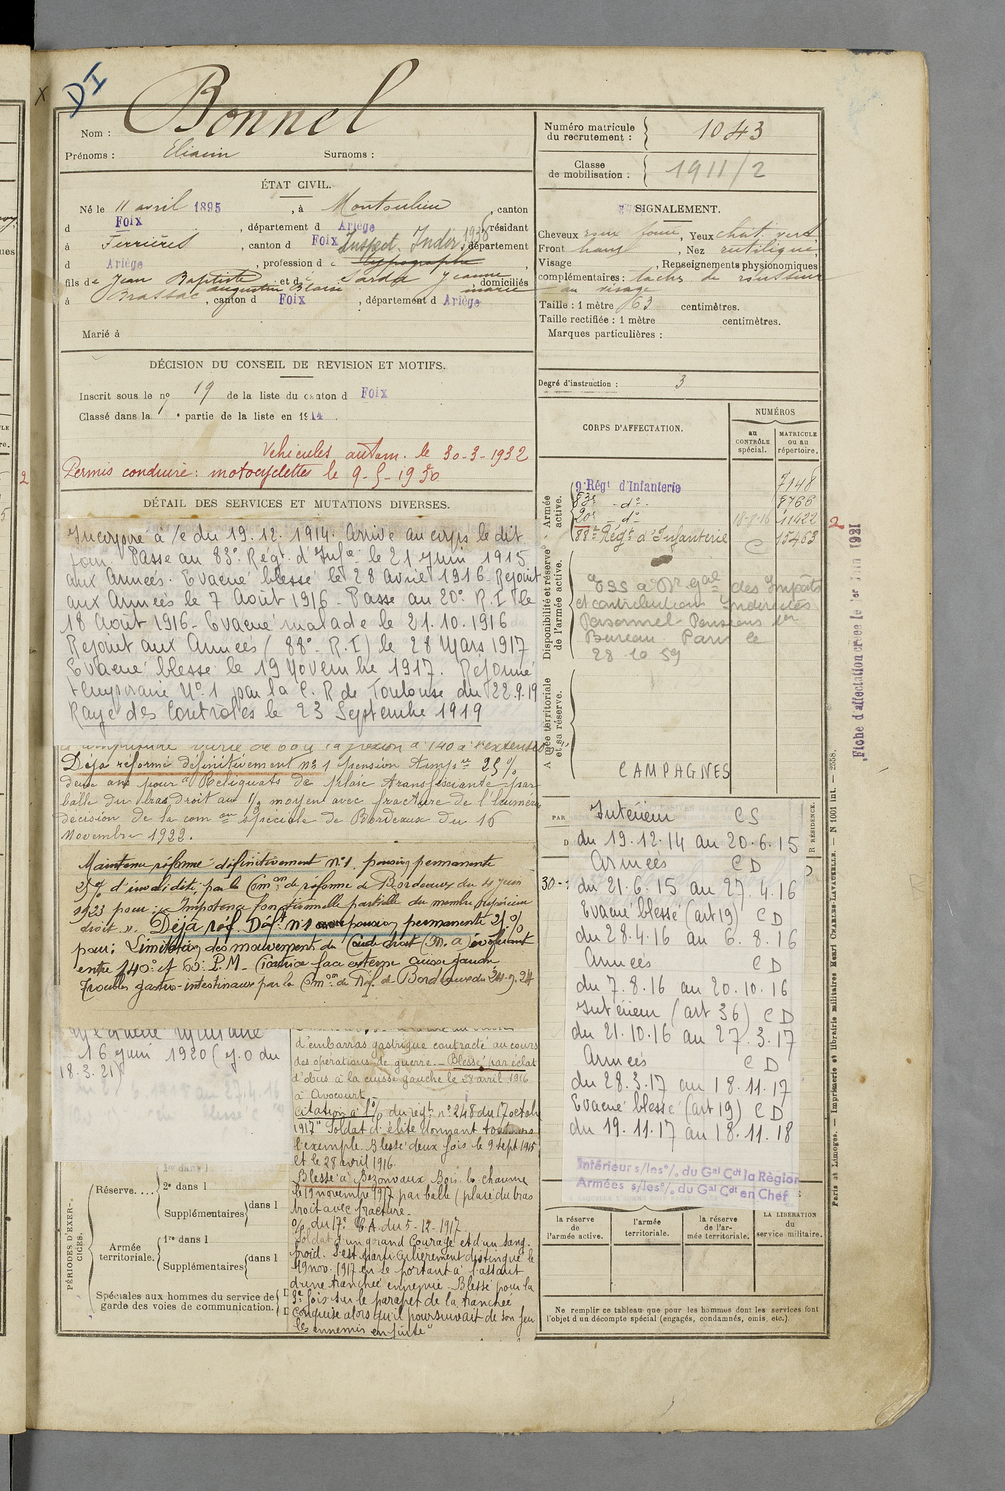 DI
Bonnel
Nom :
Prénoms : Eliacin Surnoms :
ÉTAT CIVIL.
Né le 11 avril 1895, à Montoulieu, canton
d Foix, département d Ariège, résidant
à Ferrières, canton d Foix, département
Inspect. Indir. 1938
d Ariège, profession d typographe
fils de Jean Baptiste et de Sarda Jeanne domiciliés
augustin Blaise marie
à Brassac, canton d Foix, département d Ariège
Marié à
DÉCISION DU CONSEIL DE REVISION ET MOTIFS.
Inscrit sous le nº 19 de la liste du canton d Foix
Classé dans la partie de la liste en 1914
Véhicules autom. le 30-3-1932
Permis conduire : motocyclettes le 9-5-1930
DÉTAIL DES SERVICES ET MUTATIONS DIVERSES.
Incorporé à /c du 19.12.1914. Arrivé au corps le dit
jour. Passé au 83e Régt d'Infie le 21 Juin 1915
aux Armées. Evacué blessé le 28 Avril 1916. Rejoint
aux Armées le 7 Août 1916. Passé au 20e R.I. le
18 Août 1916 - Evacué malade le 21.10.1916
Rejoint aux Armées (88e R.I) le 28 Mars 1917
Evacué blessé le 19 Novembre 1917. Réformé
temporaire Nº 1 par la C.R de Toulouse du 22.9.19
Rayé des Contrôles le 23 Septembre 1919
Déjà réformé définitivement nº 1 pension tempre 25 %
deux ans pour : Reliquats de plaie transfixiante par
balle du bras droit au 1/3 moyen avec fracture de l'humérus
décision de la com on spéciale de Bordeaux du 16
Novembre 1922.
Maintenu réformé définitivement nº 1 pension permanente
25 % d'invalidité par la Common de réforme de Bordeaux du 4 juin
1923 pour : « Impotence fonctionnelle partielle du membre supérieur
droit ». Déjà réf. Déft nº 1 pension permanente 25 %
pour : Limitation des mouvements du coude droit (M.A) évoluant
entre 140º et 65º P.M. Cicatrice face externe cuisse gauche
Troubles gastro-intestinaux par la Common de Réf. de Bordeaux du 24.9.24
16 Juin 1920 (J.O du
18.3.21)
d'embarras gastrique contracté au cours
des opérations de guerre. - Blessé par éclat
d'obus à la cuisse gauche le 28 avril 1916
à Avocourt.
Citation à l'o/ du régt nº 248 du 17 octob
1917 "Soldat d'élite donnant toujours
l'exemple. Blessé deux fois le 9 sept 1915
et le 28 avril 1916.
Blessé à Bezonvaux Bois le chaume
le 19 novembre 1917 par balle (plaie du bras
droit avec fracture.
o/ du 17e C.A. du 5-12-1917.
Soldat d'un grand courage et d'un sang
froid. S'est particulièrement distingué le
19 nov. 1917 en se portant à l'assaut
d'une tranchée ennemie. Blessé pour la
3e fois sur le parapet de la tranchée
conquise alors qu'il poursuivait de son feu
les ennemis en fuite"
PÉRIODES D'EXERCICES.
Réserve....
1re dans l
2e dans l
Supplémentaires dans l
Armée territoriale.
1re dans l
Supplémentaires dans l
Spéciales aux hommes du service de
garde des voies de communication.
Numéro matricule
du recrutement : 1043
Classe
de mobilisation : 1911/2
SIGNALEMENT.
Cheveux roux foncé, Yeux chat. vert
Front haut, Nez rectiligne
Visage, Renseignements physionomiques
complémentaires : taches de rousseur
au visage
Taille : 1 mètre 63 centimètres.
Taille rectifiée : 1 mètre centimètres.
Marques particulières :
Degré d'instruction : 3
CORPS D'AFFECTATION.
NUMÉROS
au
CONTRÔLE
spécial.
MATRICULE
ou au
répertoire.
Armée active.
9e Régt d'Infanterie 7148
83e dº 8766
20e dº 18-8-16 11422
88e Régt d'Infanterie C 15463
2
Disponibilité et réserve de l'armée active.
des Impôts
et contributions Indirectes
Personnel Pensions 1er
Bureau Paris le
28 10 59
Armée territoriale et sa réserve.
CAMPAGNES
Intérieur CS
du 19.12.14 au 20.6.15
Armées CD
du 21.6.15 au 27.4.16
Evacué blessé (art 19) CD
du 28.4.16 au 6.8.16
Armées CD
du 7.8.16 au 20.10.16
Intérieur (art 36) CD
du 21.10.16 au 27.3.17
Armées CD
du 28.3.17 au 18.11.17
Evacué blessé (art 19) CD
du 19.11.17 au 18.11.18
Intérieur s/les o/ du Gal Cdt la Région
Armées s/les o/ du Gal Cdt en Chef
PAR
D
30-
RÉSIDENCE.
la réserve
de
l'armée active.
l'armée
territoriale.
la réserve
de l'ar-
mée territoriale.
LA LIBÉRATION
du
service militaire.
Ne remplir ce tableau que pour les hommes dont les services font
l'objet d'un décompte spécial (engagés, condamnés, omis, etc.).
Fiche d'affectation créée le 1er Juin 1921
Paris et Limoges. — Imprimerie et librairie militaires Henri CHARLES-LAVAUZELLE. — N 1001 int. — 2558.